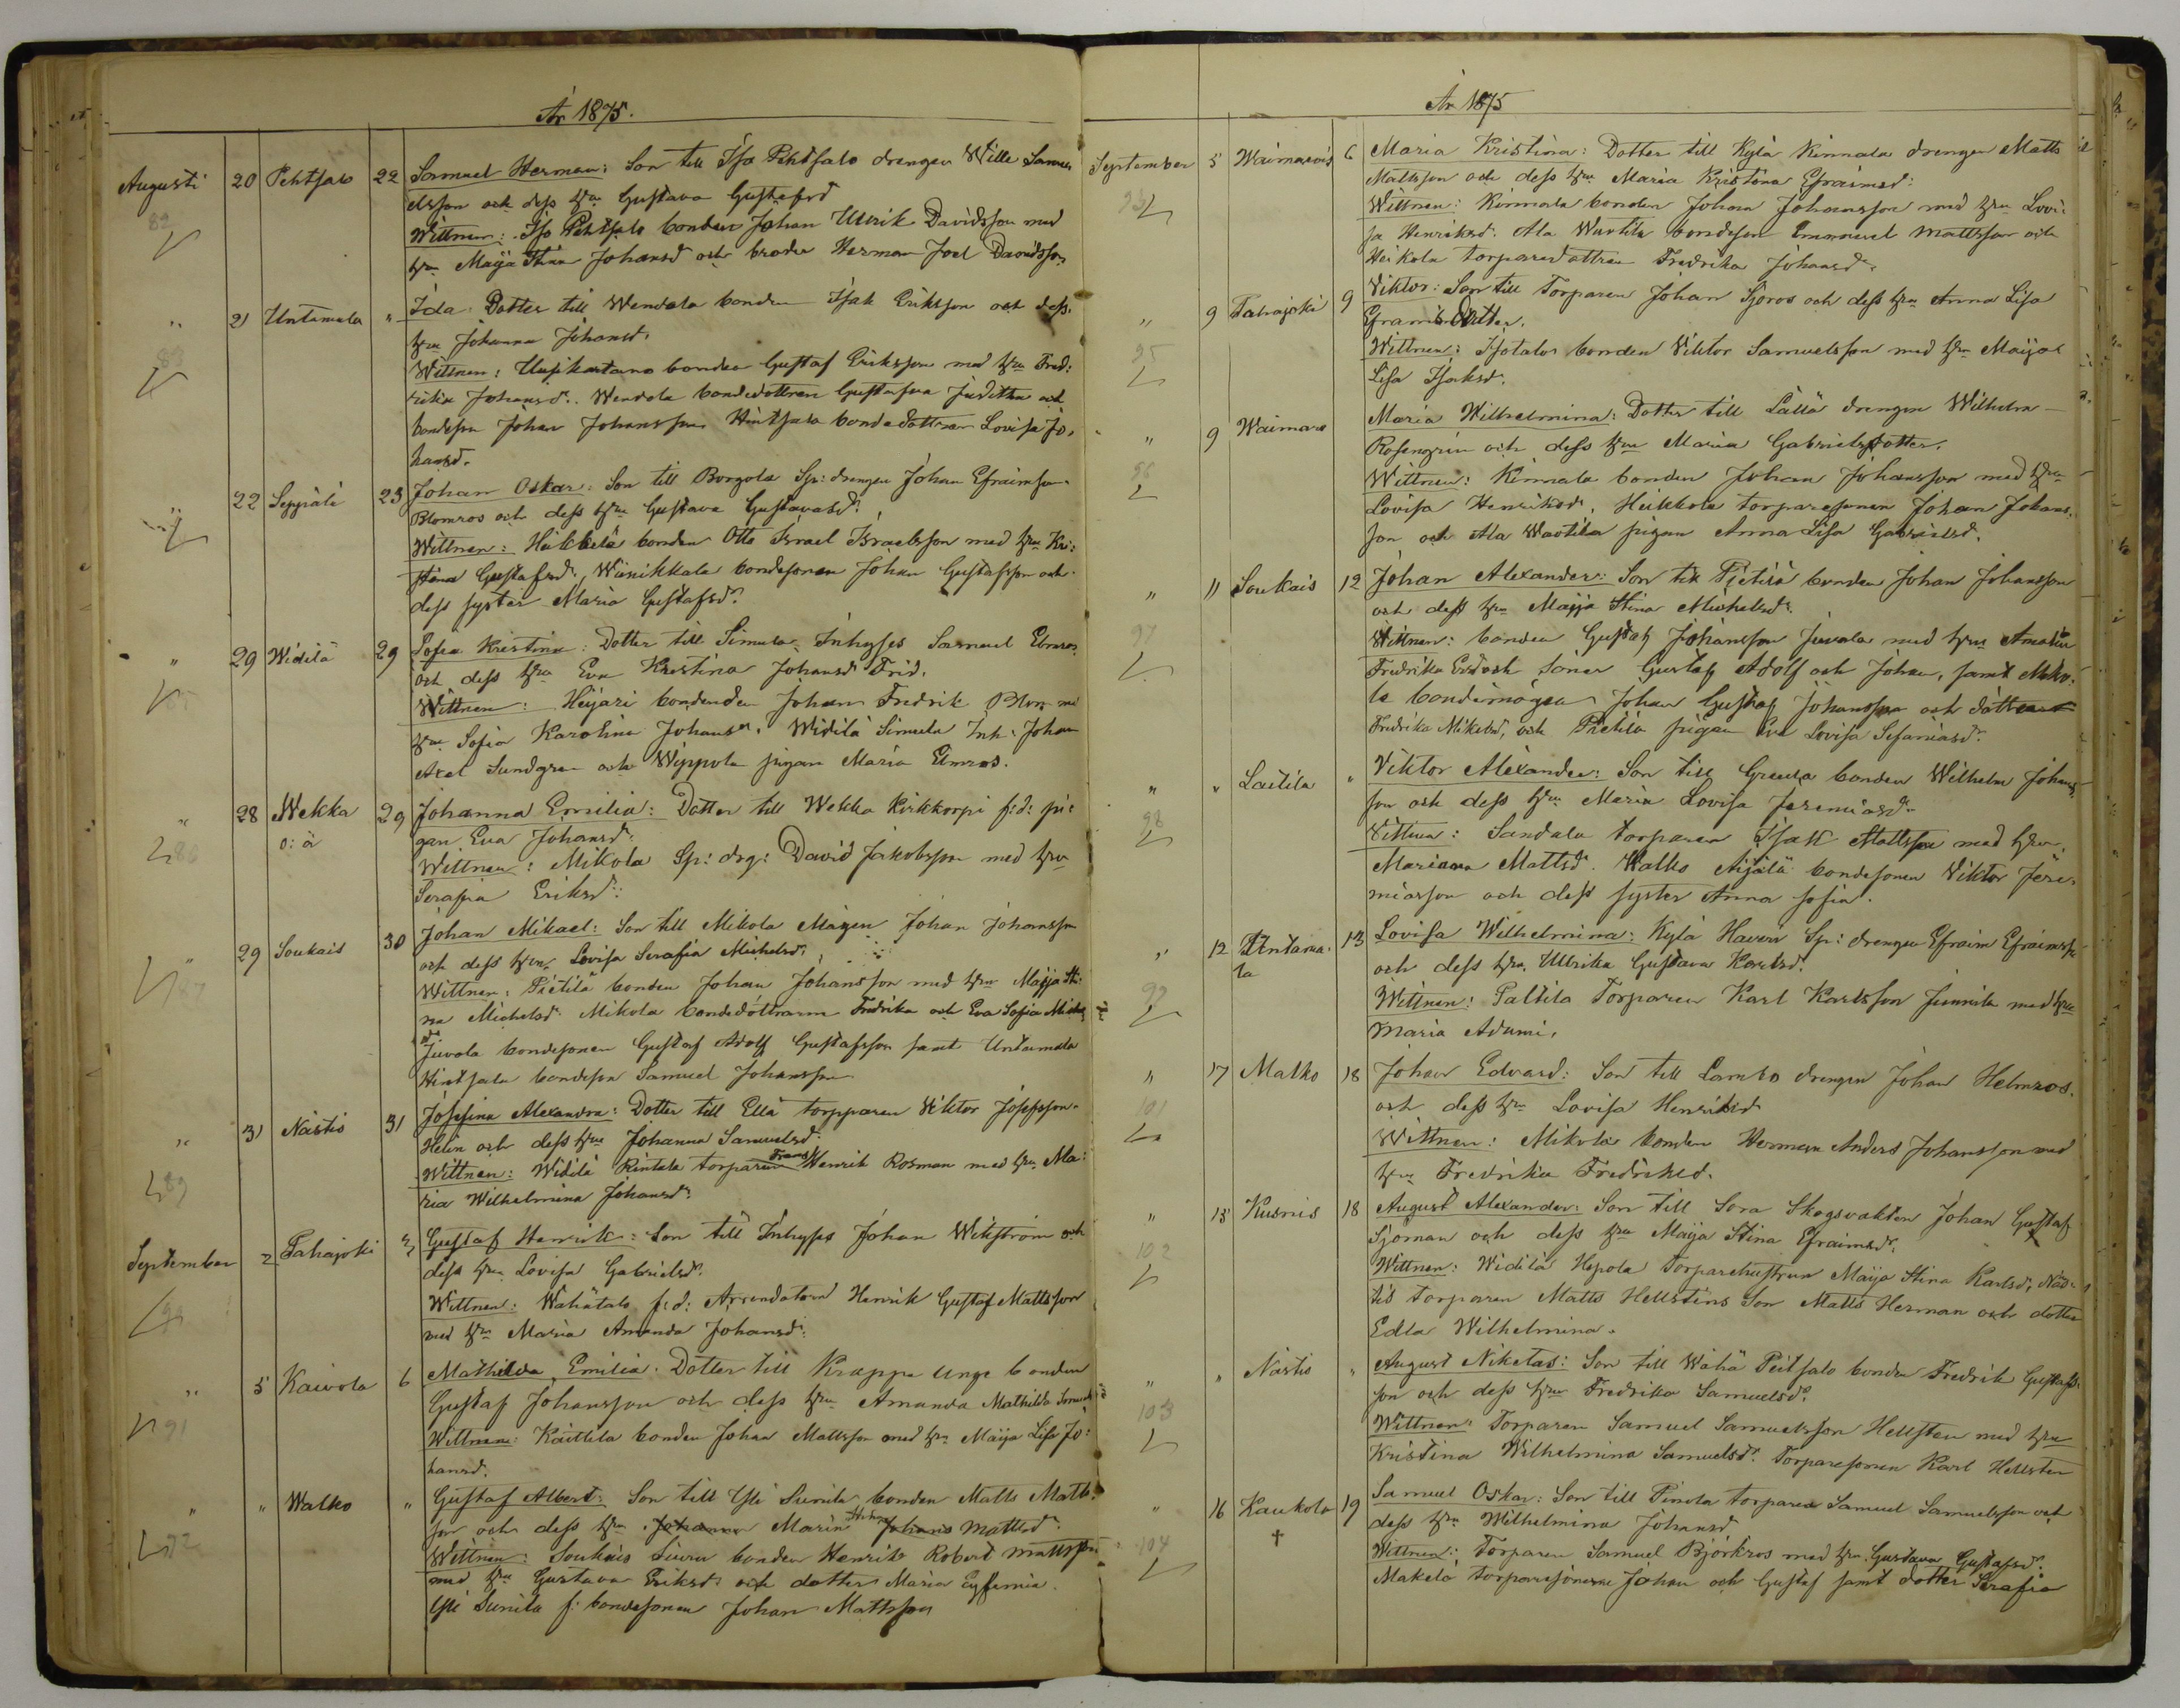 År 1875.
Augusti 20 Pehtsalo 22 Samuel Herman: Son till Iso Pehtsalo drengen Wille Samu
82 elsson och dess hru Gustava Gustafsd
Wittnen: Iso Pehtsalo bonden Johan Ulrik Davidsson med
hru Maija Stina Johansd och broder Herman Joel Davidsson
" 21 Untamala " Ida: Dotter till Wendala bonden Isak Eriksson och dess
83 hru Johanna Johansd.
Wittnen: Uusikartano bonden Gustaf Eriksson med hru Fred:
rika Johansd. Wendola bondedottren Gustafva Juditha och
bondeson Johan Johansson Hintsala bondedottren Lovisa Jo:
hansd.
" 22 Seppälä 23 Johan Oskar: Son till Borgola Sp: drengen Johan Efraimsson
Blomros och dess hru Gustava Gustavasd:
Wittnen: Heikkilä bonden Otto Israel Israelsson med hru Kri:
stina Gustafsd: Wiinikkala bondesonen Johan Gustafsson och
dess syster Maria Gustafsd:
" 29 Widilä 29 Sofia Kristina: Dotter till Simula Inhyses Samuel Elmros
85 och dess hru Eva Kristina Johansd Frid.
Wittnen: Heijari bonden Johan Fredrik Blom med
hru Sofia Karolina Johansdr. Widilä Simula Inh: Johan
Axel Sundgren och Wippola pigan Maria Elmros.
" 28 Wekka 29 Johanna Emilia: Dotter till Wekka Kirkkorpi f:d: pi:
86 o: ä gan Eva Johansd:
Wittnen: Mikola Sp: drg: David Jakobsson med hru
Serafia Eriksd:
" 29 Soukais 30 Johan Mikael: Son till Mikola Mågen Johan Johansson
87 och dess hru Lovisa Serafia Michelsd:
Wittnen: Pietilä bonden Johan Johansson med hru Maija Sti:
na Michelsd: Mikola bondedöttrarna Fredrika och Eva Sofia Michels
d: Juvola bondesonen Gustaf Adolf Gustafsson samt Untamala
Hintsala bondeson Samuel Johansson
" 31 Nästis 31 Josefina Alexandra: Dotter till Ellä torpparen Viktor Josefsson
89 Helin och dess hru Johanna Samuelsd:
Wittnen: Widilä Rintala torparen Frans Henrik Rosman med hru Ma:
ria Wilhelmina Johansd:
September 2 Palojoki Gustaf Henrik: Son till Inhyses Johan Wikström och
90 dess hru Lovisa Gabrielsd:
Wittnen: Wähätalo f:d: Arrendatorn Henrik Gustaf Mattsson
med hru Maria Amanda Johansd:
" 5 Kaivola 6 Mathilda Emilia: Dotter till Krappa unge bonden
91 Gustaf Johansson och dess hru Amanda Mathilda
Wittnen: Kaittila bonden Johan Mattsson med hru Maija Lisa Jo:
hansd.
" " Walko " Gustaf Albert: Son till Yli Sunila bonden Matts Matts:
92 son och dess hru Johanna Maria Johans Mattsd:
Wittnen: Soukais Siuru bonden Henrik Robert Mattsson
med hru Gustava Eriksd: och dotter Maria Eufemia.
Yli Sunila f: bondesonen Johan Mattsson
År 1875
September 5 Waimaro 6 Maria Kristina: Dotter till Kylä Kinnala drengen Matts
Mattsson och dess hru Maria Kristina Efraimsd:
Wittnen: Kinnala bonden Johan Johansson med hru Lovi:
sa Henriksd: Ala Wartila bondeson Emanuel Mattsson och
Heikola torparedottren Fredrika Johansd:
" 9 Palojoki 9 Viktor: Son till Torparen Johan Sjöros och dess hru Anna Lisa
95 Dotter.
Wittnen: Isotalo bonden Viktor Samuelsson med hru Maija
Lisa Isaksd:
" 9 Waimaro Maria Wilhelmina: Dotter till Lällä drengen Wilhelm
96 Rosengrén och dess hru Maria Gabrielsdotter.
Wittnen: Kinnala bonden Johan Johansson med hru
Lovisa Henriksd: Heikkola torparesonen Johan Johans
son och Ala Wartila pigan Anna Lisa Gabrielsd.
" 11 Soukais 12 Johan Alexander: Son till Pietilä bonden Johan Johansson
och dess hru Maija Stina Michelsd:
97 Wittnen: bonden Gustaf Johansson Juvala med hru Amalia
Fredrika och Söner Gustaf Adolf och Johan, samt Miko:
la bondemågen Johan Gustaf Johansson och dotter
Fredrika Mikelsd, och Pietilä pigan Eva Lovisa Sefaniasd:
" " Laitila " Viktor Alexander: Son till Greula bonden Wilhelm Johans
98 son och dess hru Maria Lovisa Jeremiasd:
Wittnen: Sandala torparen Isak Mattsson med hru
Mariana Mattsd. Walko Äijälä bondesonen Viktor Jere:
miasson och dess syster Anna Sofia.
" 12 Untama: 13 Lovisa Wilhelmina: Kylä Haveri Sp: drengen Efraim Efraimsson
la och dess hru Ulrika Gustava Karlsd.
99 Wittnen: Paltila Torparen Karl Karlsson Junnila med hru
Maria Adami.
" 17 Malko 18 Johan Edvard: Son till Lambo drengen Johan Helmros.
101 och dess hru Lovisa Henriksd
Wittnen: Mikola bonden Herman Anders Johansson med
hru Fredrika Fredriksd.
" 15 Kusnis 18 August Alexander: Son till Sora Skogsvakten Johan Gustaf
102 Sjöman och dess hru Maija Stina Efraimsd:
Wittnen: Widilä Hepola torparehustrun Maija Stina Karlsd; Näs:
tis torparen Matts Hellstens Son Matts Herman och dotter
Edla Wilhelmina.
" " Nästis " August Niketas: Son till Wähä Peitsalo bonden Fredrik Gustafs:
103 son och dess hru Fredrika Samuelsd:
Wittnen: Torparen Samuel Samuelsson Hellsten med hru
Kristina Wilhelmina Samuelsd: Torparesonen Karl Hellsten
" 16 Kaukola 19 Samuel Oskar: Son till Pinola torparen Samuel Samuelsson och
104 † dess hru Wilhelmina Johansd
Wittnen: Torparen Samuel Björkros med hru Gustava Gustafsd:
Mäkelä torparesönerne Johan och Gustaf samt dotter Serafia